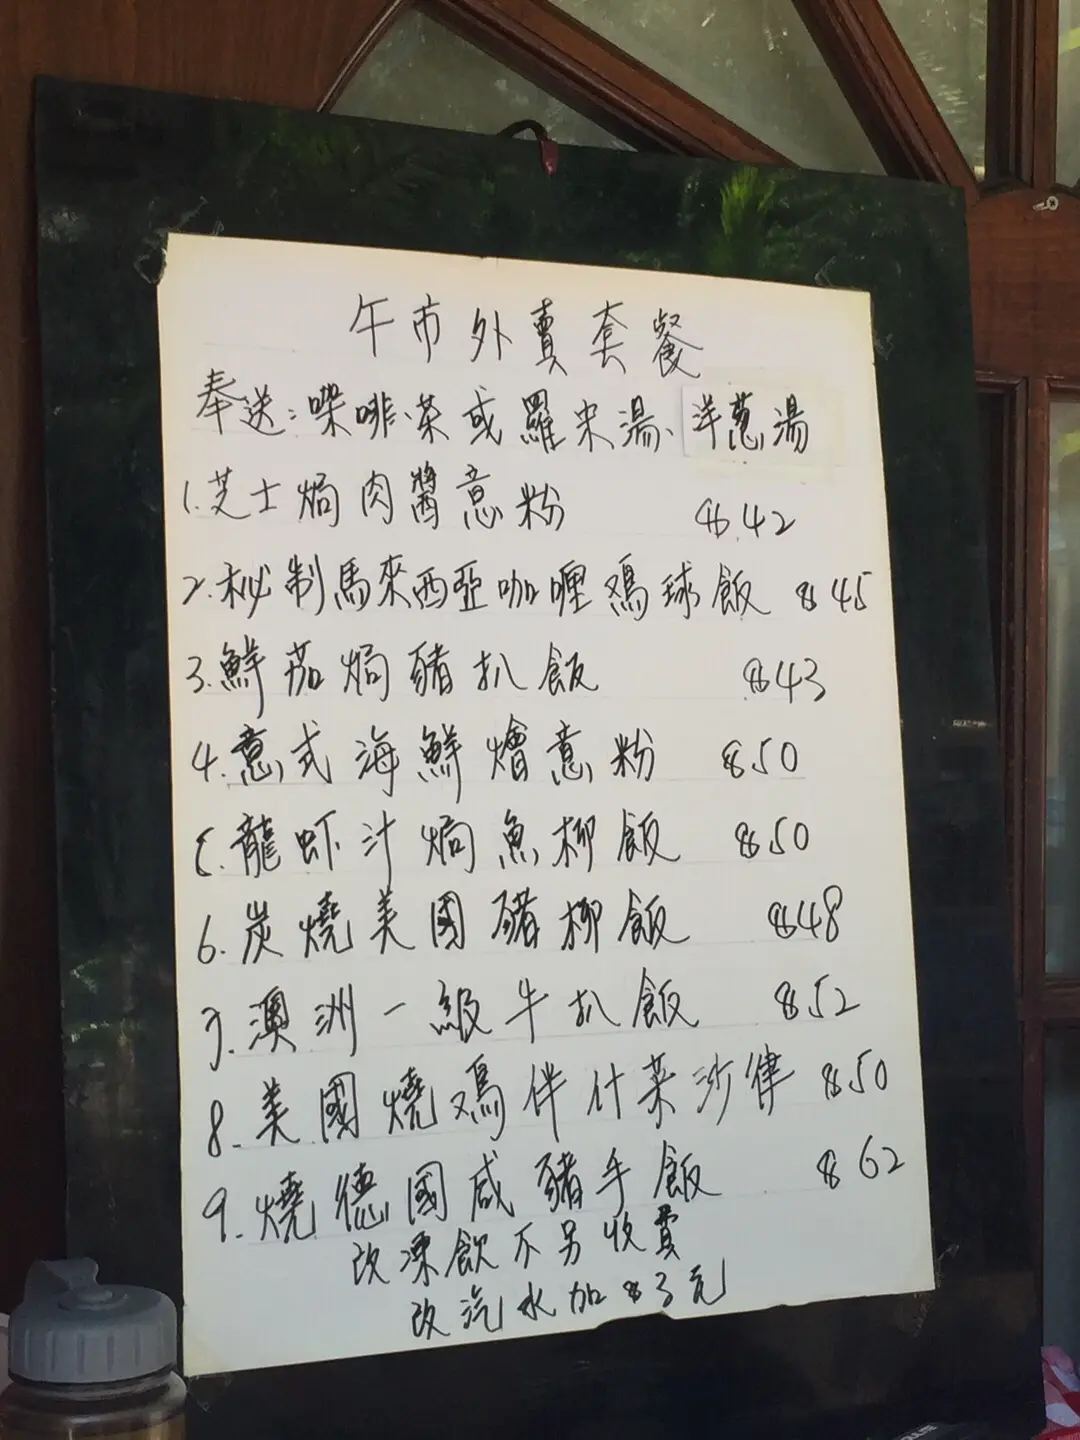 午市外賣套餐
奉送:啡啡、茶或羅宋湯、洋蔥湯
1.芝士焗肉醬意粉 $42
2.秘制馬來西亞咖喱鷄球飯 $45
3.鮮茄焗豬扒飯 $43
4.意式海鮮燴意粉 $50
5.龍虾汁焗魚柳飯 $50
6.炭燒美國豬柳飯 $48
7.澳洲一級牛扒飯 $52
8.美國燒鷄伴什菜沙律 $50
9.燒德國咸豬手飯 $62
改凍飲不另收費
改汽水加$3元